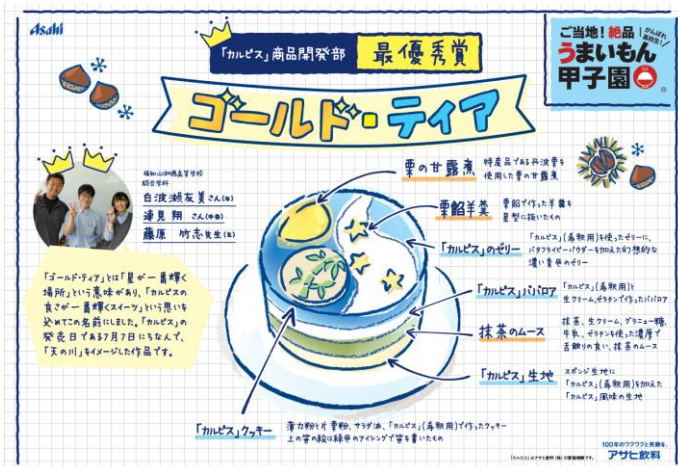 Asahi
「カルピス」商品開発部 最優秀賞
ゴールド・ティア
ご当地!絶品
うまいもん
甲子園
がんばれ
高校生!
総合学科
白波瀬友美さん(右)
蓮見 翔 さん(中央)
藤原 竹志先生(左)
「ゴールド・ティア」とは「星が一番輝く
場所」という意味があり、「カルピスの
良さが一番輝くスイーツ」という思いを
込めてこの名前にしました。「カルピス」の
発売日である7月7日にちなんで、
「天の川」をイメージした作品です。
栗の甘露煮
特産品である丹波栗を
使用した栗の甘露煮
栗餡羊羹
栗餡で作った羊羹を
星型に抜いたもの
「カルピス」のゼリー
「カルピス」(希釈用)を使ったゼリーに、
バタフライピーパウダーを加えた幻想的な
濃い青色のゼリー
「カルピス」ババロア
「カルピス」(希釈用)と
生クリーム、ゼラチンで作ったババロア
抹茶のムース
抹茶、生クリーム、グラニュー糖、
牛乳、ゼラチンを使った濃厚で
舌触りの良い、抹茶のムース
「カルピス」生地
スポンジ生地に
「カルピス」(希釈用)を加えた
「カルピス」風味の生地
「カルピス」クッキー
薄力粉と片栗粉、サラダ油、「カルピス」(希釈用)で作ったクッキー
上の笹の絵は緑色のアイシングで笹を書いたもの
「カルピス」はアサヒ飲料(株)の登録商標です。
100年のワクワクと笑顔を。
アサヒ飲料